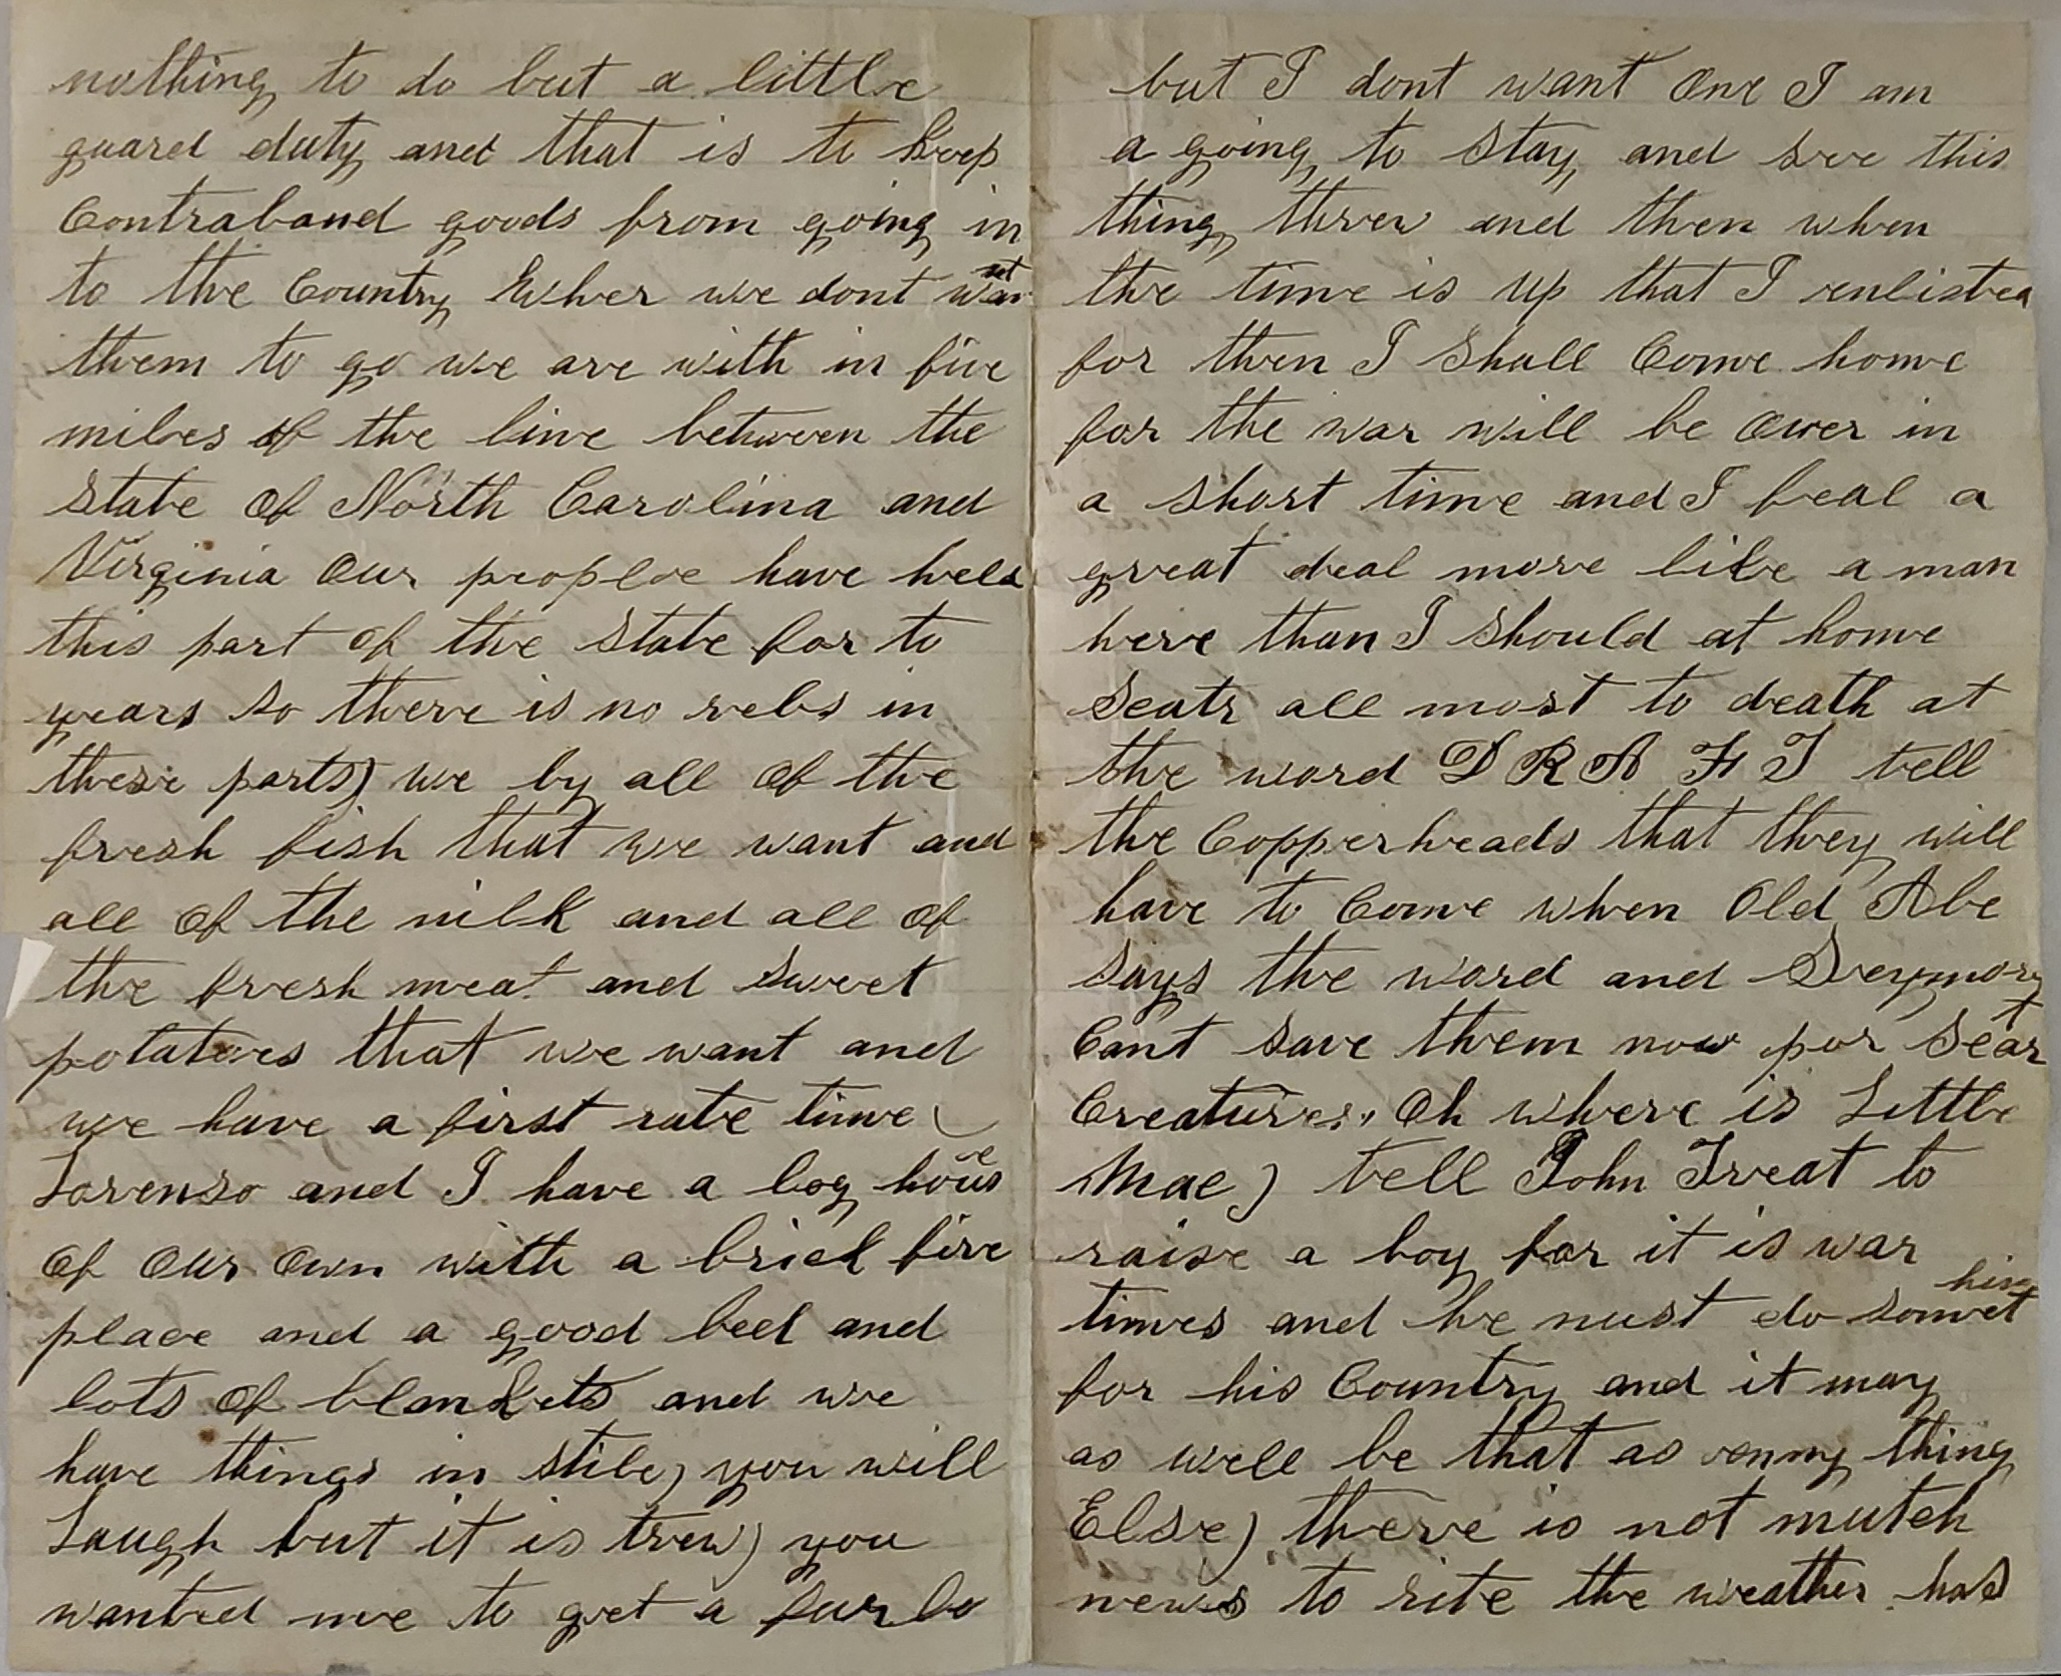 nothing to do but a little
guard duty and that is to keep
Contraband goods from going in
to the Country Wher we dont want
them to go we are with in five
miles of the line between the
State of North Carolina and
Virginia Our people have held
this part of the State for to
years so there is no rebs in
these parts) we by all of the
fresh fish that we want and
all of the milk and all of
the fresh meat and sweet
potatoes that we want and
we have a first rate time
Lorenso and I have a log house
of Our Own with a brick fire
place and a good bed and
lots of blankets and we
have things in stile) you will
Laugh but it is trew) you
wanted me to get a furlo
but I dont want One I am
a going to Stay and see this
thing threw and then when
the time is up that I enlisted
for then I Shall Come home
for the war will be Over in
a short time and I feal a
great deal more like a man
here than I Should at home
Seatr all most to death at
the word D R A F T tell
the Copperheads that they will
have to Come when Old Abe
says the word and Seymory
Cant save them now por Sear
Creatures" Oh where is Little
Mac) tell John Treat to
raise a boy for it is war
times and he must do somethin
for his Country and it may
as well be that as enny thing
Else) there is not mutch
news to rite the weather had